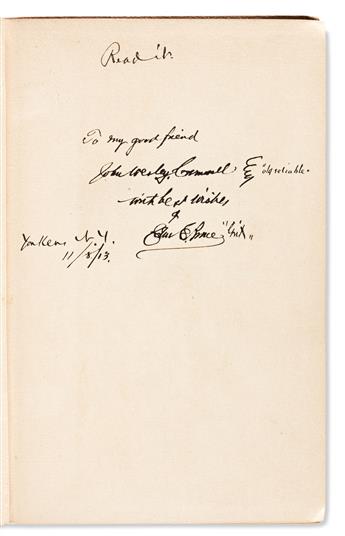 Read it.
To my good friend
John Wesley Cromwell Esq "old reliable."
with best wishes
of
John E. Bruce "Grit"
Yonkers N.Y.
11/8/13.